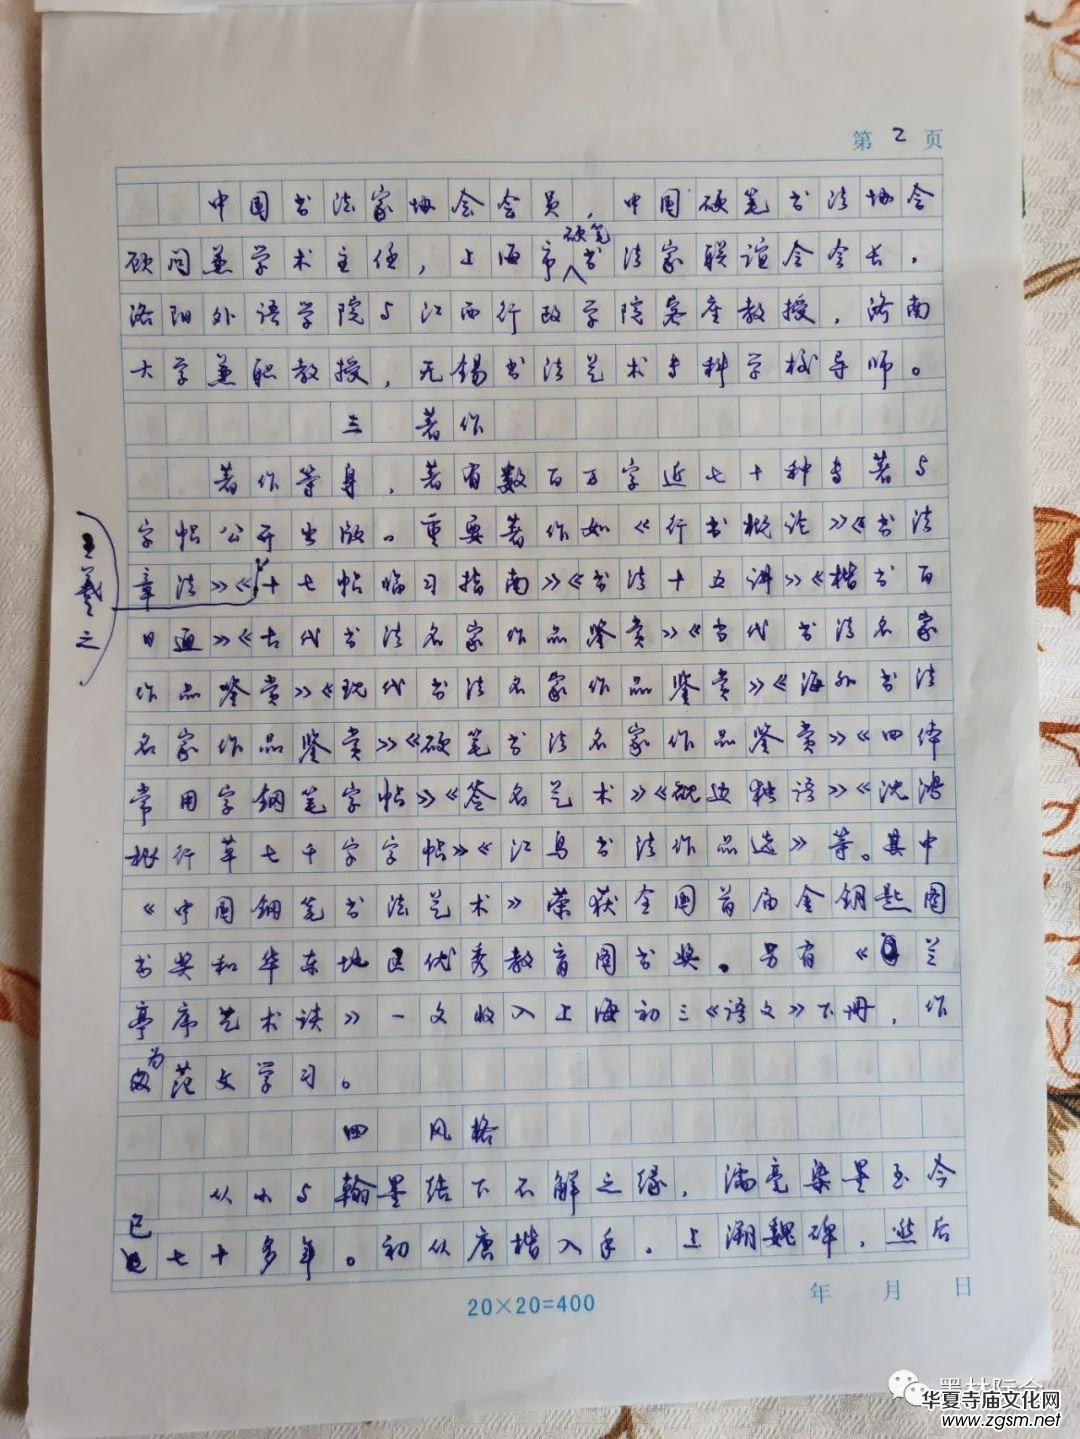 第 2 页
中国书法家协会会员，中国硬笔书法协会
顾问兼学术主任，上海市硬笔书法家联谊会会长，
洛阳外语学院与江西行政学院客座教授，济南
大学兼职教授，无锡书法艺术专科学校导师。
三 著作
著作等身，著有数百万字近七十种专著与
字帖公开出版。重要著作如《行书概论》《书法
章法》《王羲之十七帖临习指南》《书法十五讲》《楷书百
日通》《古代书法名家作品鉴赏》《当代书法名家
作品鉴赏》《现代书法名家作品鉴赏》《海外书法
名家作品鉴赏》《硬笔书法名家作品鉴赏》《四体
常用字钢笔字帖》《签名艺术》《砚边独语》《沈鸿
根行草七千字字帖》《江鸟书法作品选》等。其中
《中国钢笔书法艺术》荣获全国首届金钥匙图
书奖和华东地区优秀教育图书奖。另有《兰
亭序艺术谈》一文收入上海初三《语文》下册，作
为范文学习。
四 风格
从小与翰墨结下不解之缘，濡毫染墨至今
已七十多年。初从唐楷入手，上溯魏碑，然后
20×20=400
年 月 日
墨林际会
华夏寺庙文化网
www.zgsm.net